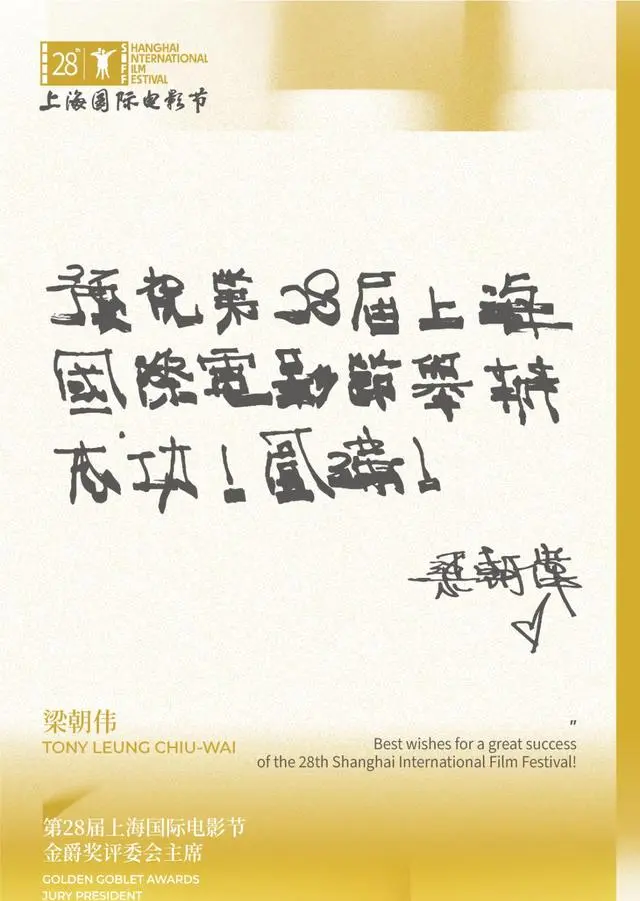 28th
SHANGHAI
INTERNATIONAL
FILM
FESTIVAL
上海国际电影节
預祝第28届上海
國際電影節舉辦
成功！圓滿！
梁朝偉
梁朝伟
TONY LEUNG CHIU-WAI
"
Best wishes for a great success
of the 28th Shanghai International Film Festival!
第28届上海国际电影节
金爵奖评委会主席
GOLDEN GOBLET AWARDS
JURY PRESIDENT